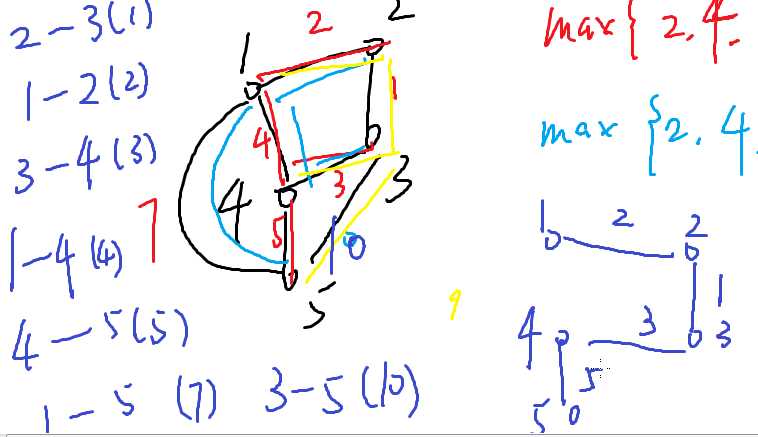 2-3(1)
1-2(2)
3-4(3)
1-4(4)
4-5(5)
1-5 (7) 3-5(10)
1 2 2
4 1
4 3 3
7 5
10
5
9
max{2,4.
max{2,4.
1 2 2
1
4 3 3
5
5